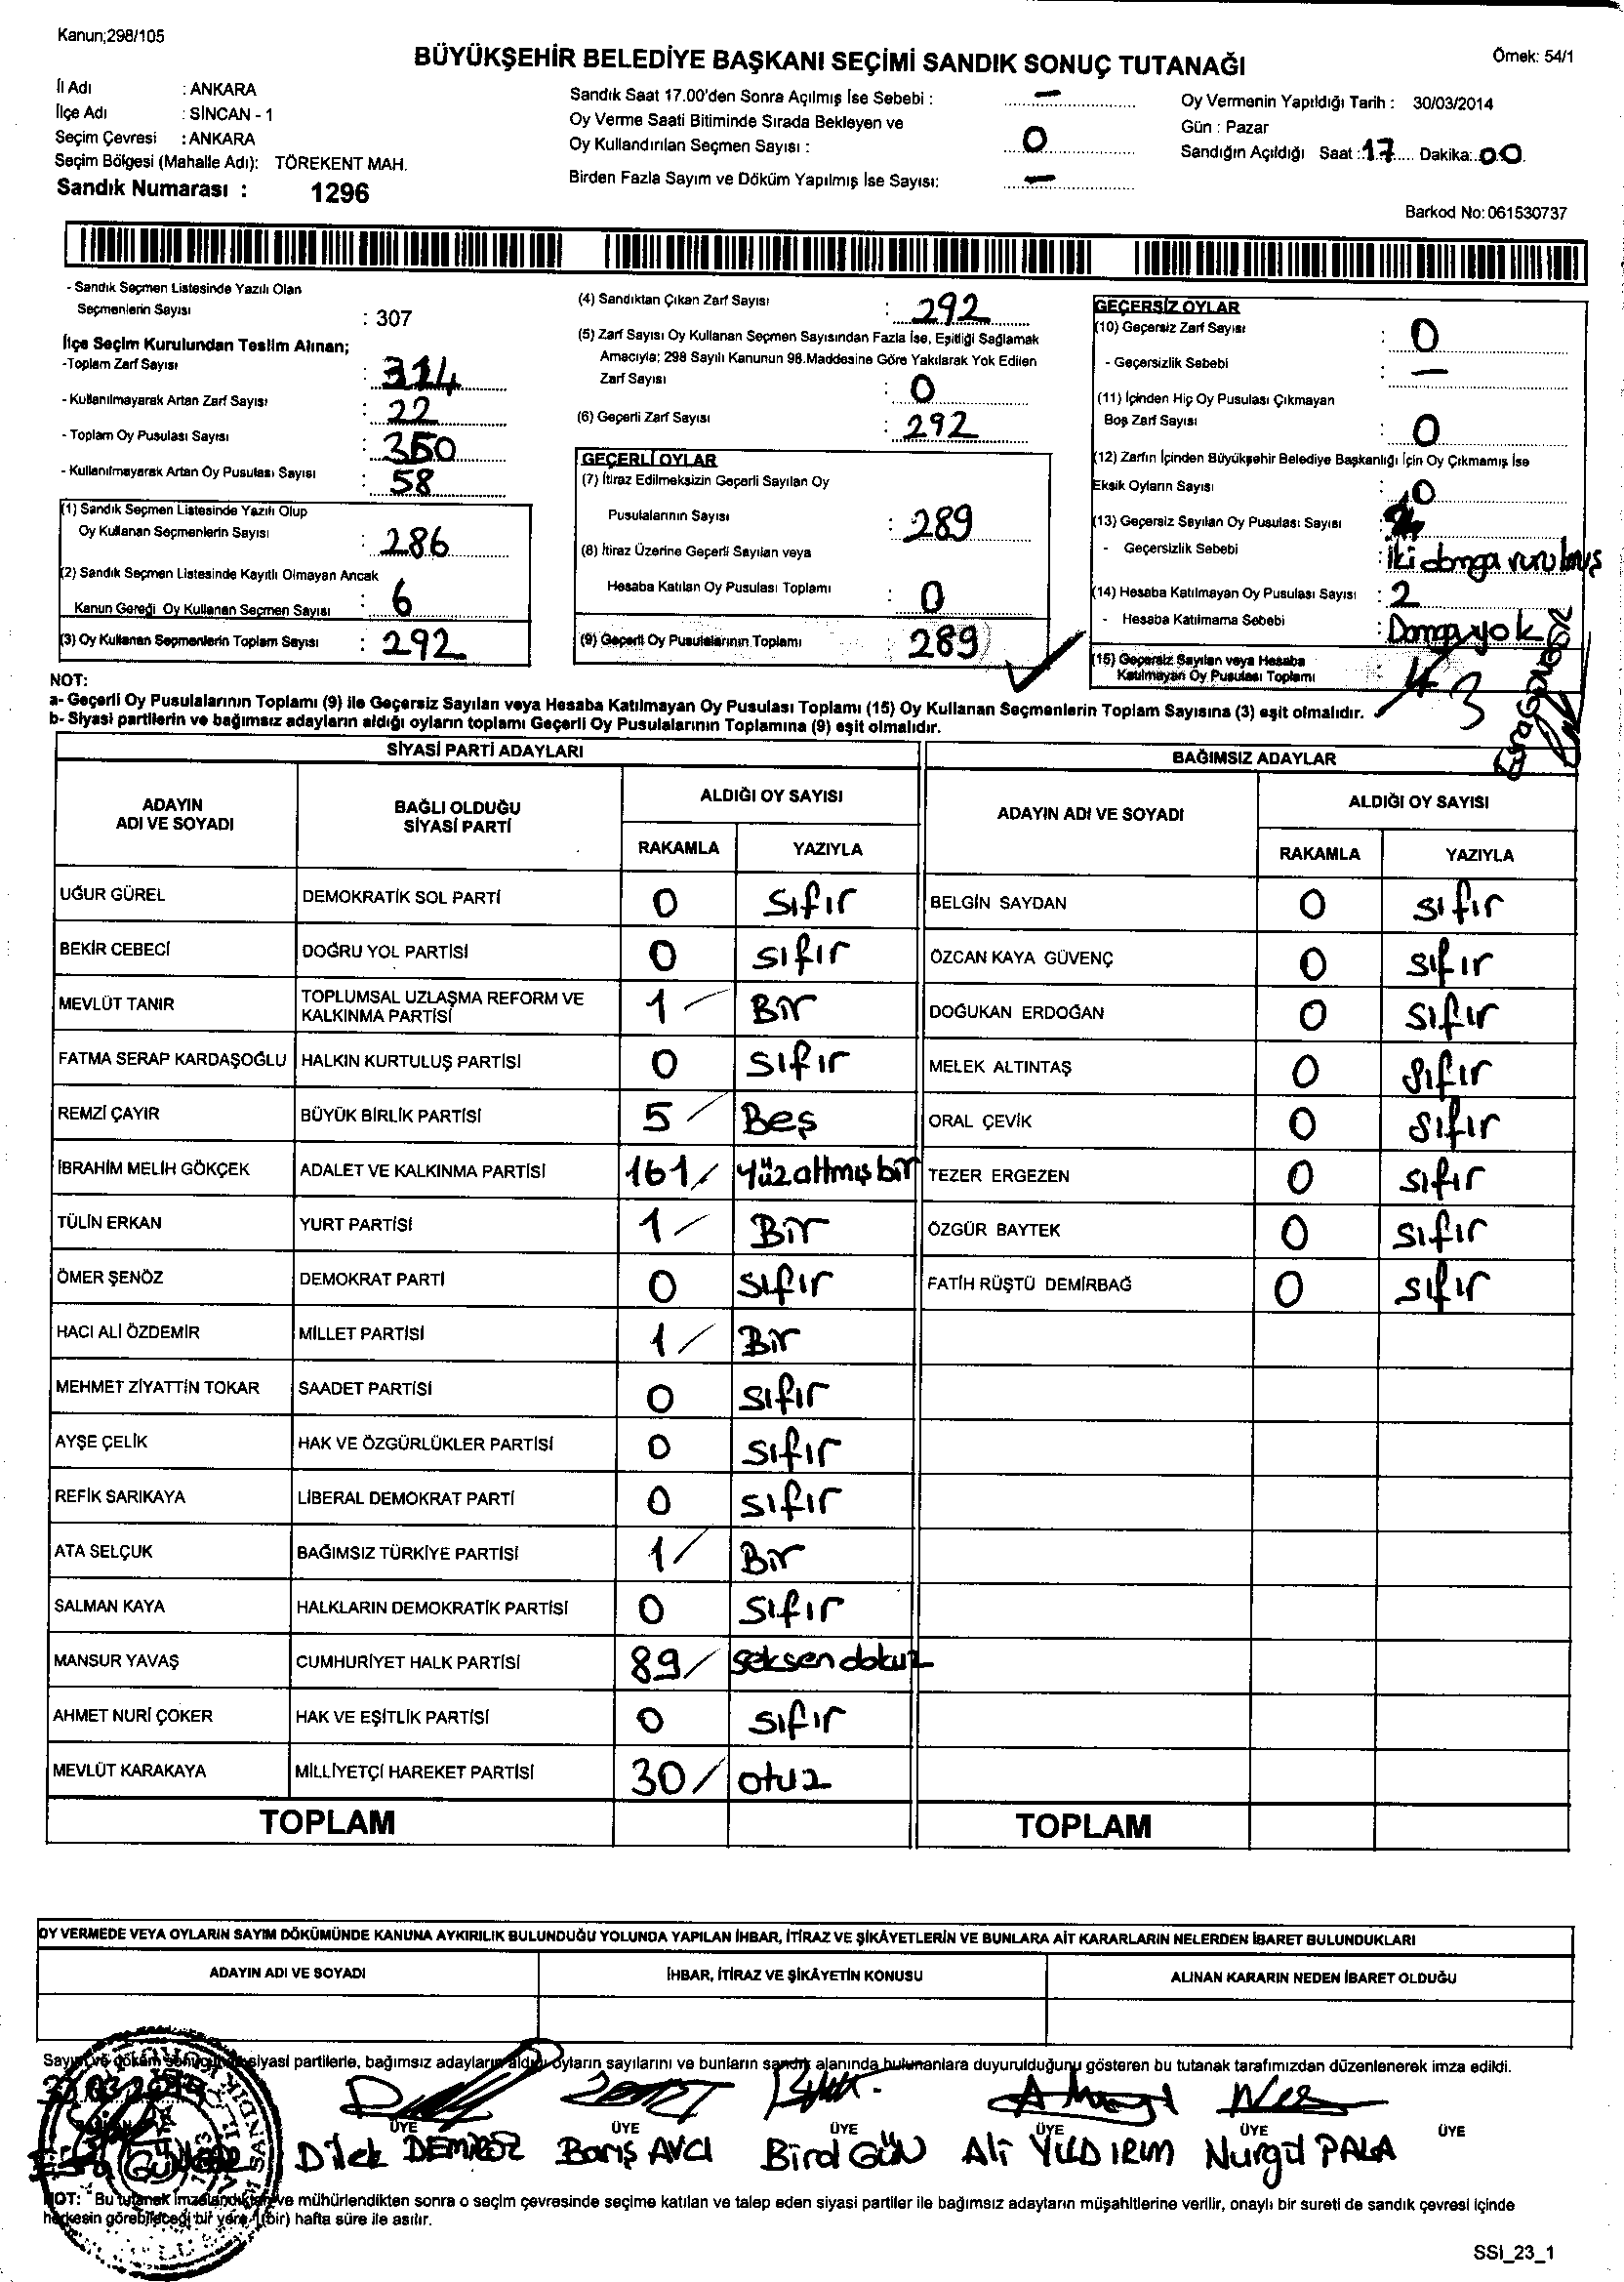 Kanun;298/105
BÜYÜKŞEHİR BELEDİYE BAŞKANI SEÇİMİ SANDIK SONUÇ TUTANAĞI
Örnek: 54/1
İl Adı : ANKARA
İlçe Adı : SİNCAN - 1
Seçim Çevresi : ANKARA
Seçim Bölgesi (Mahalle Adı): TÖREKENT MAH.
Sandık Numarası : 1296
Sandık Saat 17.00'den Sonra Açılmış İse Sebebi : –
Oy Verme Saati Bitiminde Sırada Bekleyen ve
Oy Kullandırılan Seçmen Sayısı : 0
Birden Fazla Sayım ve Döküm Yapılmış İse Sayısı: –
Oy Vermenin Yapıldığı Tarih : 30/03/2014
Gün : Pazar
Sandığın Açıldığı Saat : 17 Dakika: 00
Barkod No: 061530737
- Sandık Seçmen Listesinde Yazılı Olan
Seçmenlerin Sayısı : 307
İlçe Seçim Kurulundan Teslim Alınan;
-Toplam Zarf Sayısı : 314
- Kullanılmayarak Artan Zarf Sayısı : 22
- Toplam Oy Pusulası Sayısı : 350
- Kullanılmayarak Artan Oy Pusulası Sayısı : 58
(1) Sandık Seçmen Listesinde Yazılı Olup
Oy Kullanan Seçmenlerin Sayısı : 286
(2) Sandık Seçmen Listesinde Kayıtlı Olmayan Ancak
Kanun Gereği Oy Kullanan Seçmen Sayısı : 6
(3) Oy Kullanan Seçmenlerin Toplam Sayısı : 292
(4) Sandıktan Çıkan Zarf Sayısı : 292
(5) Zarf Sayısı Oy Kullanan Seçmen Sayısından Fazla İse, Eşitliği Sağlamak
Amacıyla; 298 Sayılı Kanunun 98.Maddesine Göre Yakılarak Yok Edilen
Zarf Sayısı : 0
(6) Geçerli Zarf Sayısı : 292
GEÇERLİ OYLAR
(7) İtiraz Edilmeksizin Geçerli Sayılan Oy
Pusulalarının Sayısı : 289
(8) İtiraz Üzerine Geçerli Sayılan veya
Hesaba Katılan Oy Pusulası Toplamı : 0
(9) Geçerli Oy Pusulalarının Toplamı : 289
GEÇERSİZ OYLAR
(10) Geçersiz Zarf Sayısı : 0
- Geçersizlik Sebebi : –
(11) İçinden Hiç Oy Pusulası Çıkmayan
Boş Zarf Sayısı : 0
(12) Zarfın İçinden Büyükşehir Belediye Başkanlığı İçin Oy Çıkmamış İse
Eksik Oyların Sayısı : 0
(13) Geçersiz Sayılan Oy Pusulası Sayısı :
- Geçersizlik Sebebi : iki damga vurulmuş
(14) Hesaba Katılmayan Oy Pusulası Sayısı : 2
- Hesaba Katılmama Sebebi : Damga yok
(15) Geçersiz Sayılan veya Hesaba
Katılmayan Oy Pusulası Toplamı 3
NOT:
a- Geçerli Oy Pusulalarının Toplamı (9) ile Geçersiz Sayılan veya Hesaba Katılmayan Oy Pusulası Toplamı (15) Oy Kullanan Seçmenlerin Toplam Sayısına (3) eşit olmalıdır.
b- Siyasi partilerin ve bağımsız adayların aldığı oyların toplamı Geçerli Oy Pusulalarının Toplamına (9) eşit olmalıdır.
SİYASİ PARTİ ADAYLARI
ADAYIN ADI VE SOYADI
BAĞLI OLDUĞU SİYASİ PARTİ
ALDIĞI OY SAYISI
RAKAMLA YAZIYLA
UĞUR GÜREL DEMOKRATİK SOL PARTİ 0 Sıfır
BEKİR CEBECİ DOĞRU YOL PARTİSİ 0 sıfır
MEVLÜT TANIR TOPLUMSAL UZLAŞMA REFORM VE KALKINMA PARTİSİ 1 Bir
FATMA SERAP KARDAŞOĞLU HALKIN KURTULUŞ PARTİSİ 0 sıfır
REMZİ ÇAYIR BÜYÜK BİRLİK PARTİSİ 5 Beş
İBRAHİM MELİH GÖKÇEK ADALET VE KALKINMA PARTİSİ 161 Yüzaltmışbir
TÜLİN ERKAN YURT PARTİSİ 1 Bir
ÖMER ŞENÖZ DEMOKRAT PARTİ 0 sıfır
HACI ALİ ÖZDEMİR MİLLET PARTİSİ 1 Bir
MEHMET ZİYATTİN TOKAR SAADET PARTİSİ 0 sıfır
AYŞE ÇELİK HAK VE ÖZGÜRLÜKLER PARTİSİ 0 sıfır
REFİK SARIKAYA LİBERAL DEMOKRAT PARTİ 0 sıfır
ATA SELÇUK BAĞIMSIZ TÜRKİYE PARTİSİ 1 Bir
SALMAN KAYA HALKLARIN DEMOKRATİK PARTİSİ 0 sıfır
MANSUR YAVAŞ CUMHURİYET HALK PARTİSİ 89 seksendokuz
AHMET NURİ ÇOKER HAK VE EŞİTLİK PARTİSİ 0 sıfır
MEVLÜT KARAKAYA MİLLİYETÇİ HAREKET PARTİSİ 30 otuz
TOPLAM
BAĞIMSIZ ADAYLAR
ADAYIN ADI VE SOYADI
ALDIĞI OY SAYISI
RAKAMLA YAZIYLA
BELGİN SAYDAN 0 sıfır
ÖZCAN KAYA GÜVENÇ 0 sıfır
DOĞUKAN ERDOĞAN 0 sıfır
MELEK ALTINTAŞ 0 sıfır
ORAL ÇEVİK 0 sıfır
TEZER ERGEZEN 0 sıfır
ÖZGÜR BAYTEK 0 sıfır
FATİH RÜŞTÜ DEMİRBAĞ 0 sıfır
TOPLAM
OY VERMEDE VEYA OYLARIN SAYIM DÖKÜMÜNDE KANUNA AYKIRILIK BULUNDUĞU YOLUNDA YAPILAN İHBAR, İTİRAZ VE ŞİKÂYETLERİN VE BUNLARA AİT KARARLARIN NELERDEN İBARET BULUNDUKLARI
ADAYIN ADI VE SOYADI
İHBAR, İTİRAZ VE ŞİKÂYETİN KONUSU
ALINAN KARARIN NEDEN İBARET OLDUĞU
Sayım ve döküm siyasi partilerle, bağımsız adayların aldığı oyların sayılarını ve bunların sandık alanında bulunanlara duyurulduğunu gösteren bu tutanak tarafımızdan düzenlenerek imza edildi.
ÜYE ÜYE ÜYE ÜYE ÜYE ÜYE
Dilek DEMİRÖZ Barış AVCI Birol GÜN Ali YILDIRIM Nurgül PALA
NOT: Bu tutanak imzalandıktan ve mühürlendikten sonra o seçim çevresinde seçime katılan ve talep eden siyasi partiler ile bağımsız adayların müşahitlerine verilir, onaylı bir sureti de sandık çevresi içinde
herkesin görebileceği bir yere 1 (bir) hafta süre ile asılır.
SSI_23_1